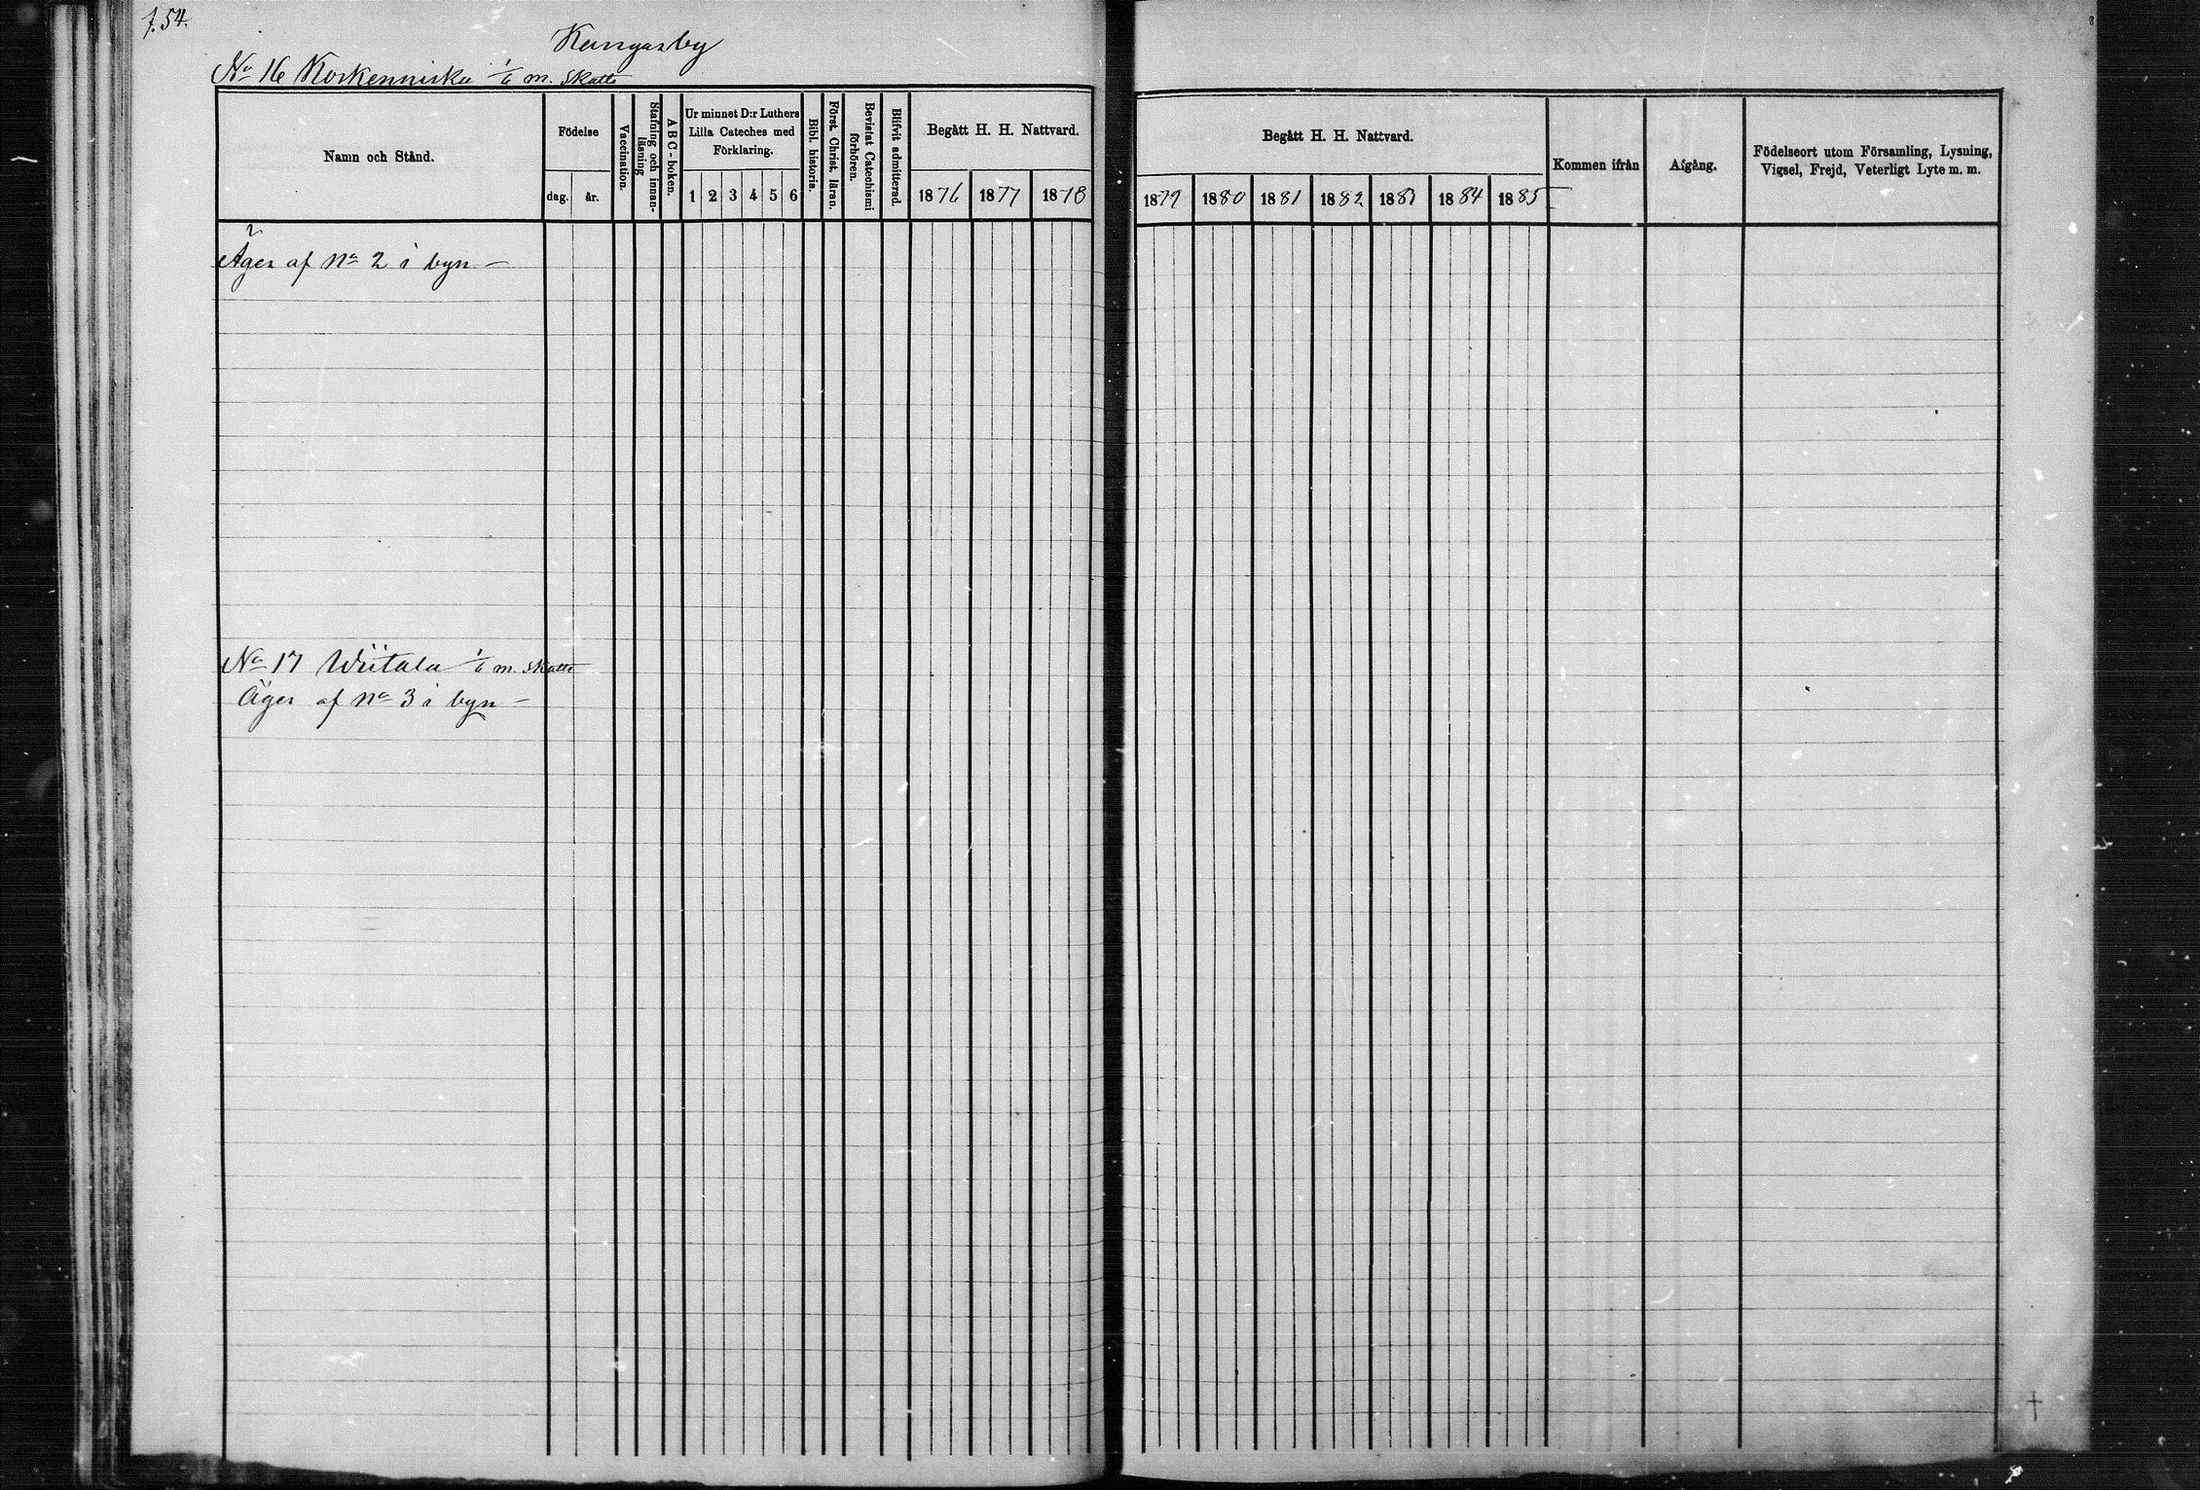 754.
Kangasby
No 16 Koskenniska 1/6 m. skatte
Namn och Stånd.
Födelse
dag.
år.
Vaccination.
Stafning och innan-
läsning
A B C - boken.
Ur minnet D:r Luthers
Lilla Cateches med
Förklaring.
1 2 3 4 5 6
Bibl. historia.
Först. Christ. läran.
Bevistat Catechismi
förhören.
Blifvit admitterad.
Begått H. H. Nattvard.
1876 1877 1878
Begått H. H. Nattvard.
1879 1880 1881 1882 1883 1884 1885
Kommen ifrån
Afgång.
Födelseort utom Församling, Lysning,
Vigsel, Frejd, Veterligt Lyte m. m.
Äges af No 2 i byn –
No 17 Wiitala 1/6 m. skatte
Äges af No 3 i byn –